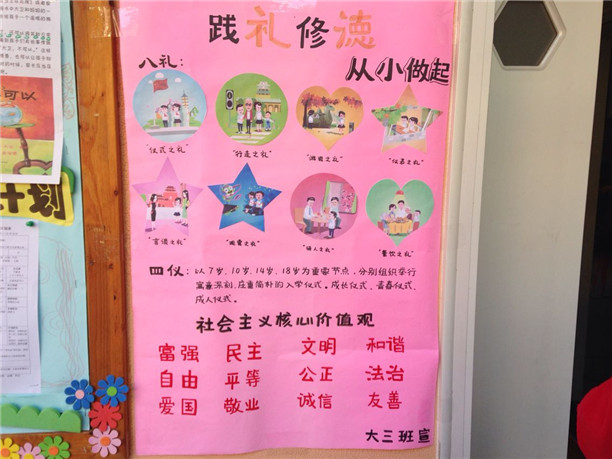 践礼修德
从小做起
八礼：
"仪式之礼" "行走之礼" "游览之礼" "仪表之礼"
"言谈之礼" "观赏之礼" "待人之礼" "餐饮之礼"
四仪：以7岁、10岁、14岁、18岁为重要节点，分别组织举行
寓意深刻、庄重简朴的入学仪式、成长仪式、青春仪式、
成人仪式。
社会主义核心价值观
富强 民主 文明 和谐
自由 平等 公正 法治
爱国 敬业 诚信 友善
大三班宣
可以
计划